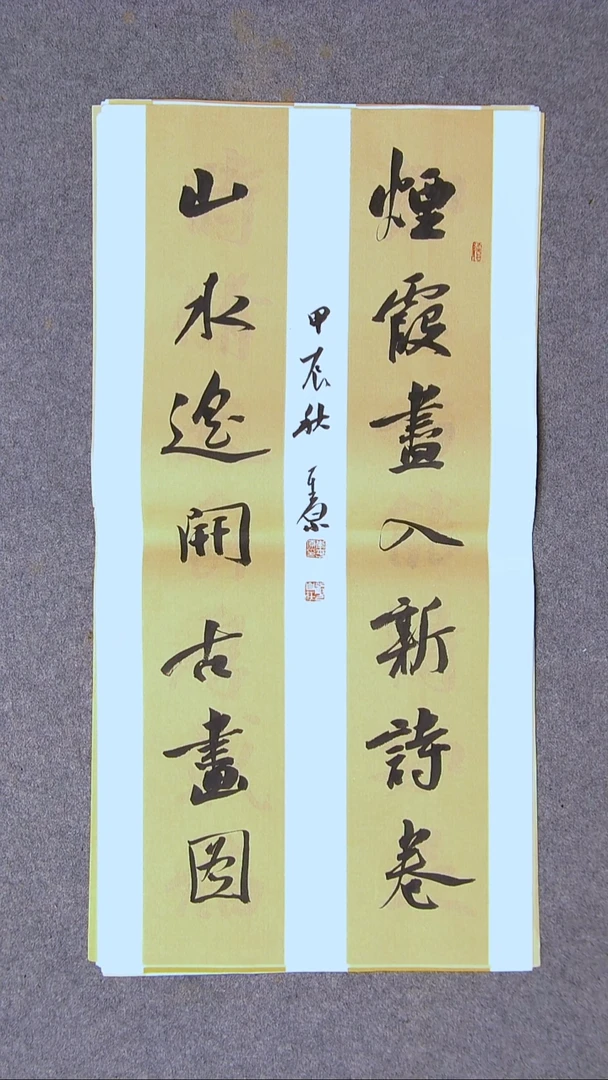 煙霞盡入新詩卷
山水遥開古畫图
甲辰秋